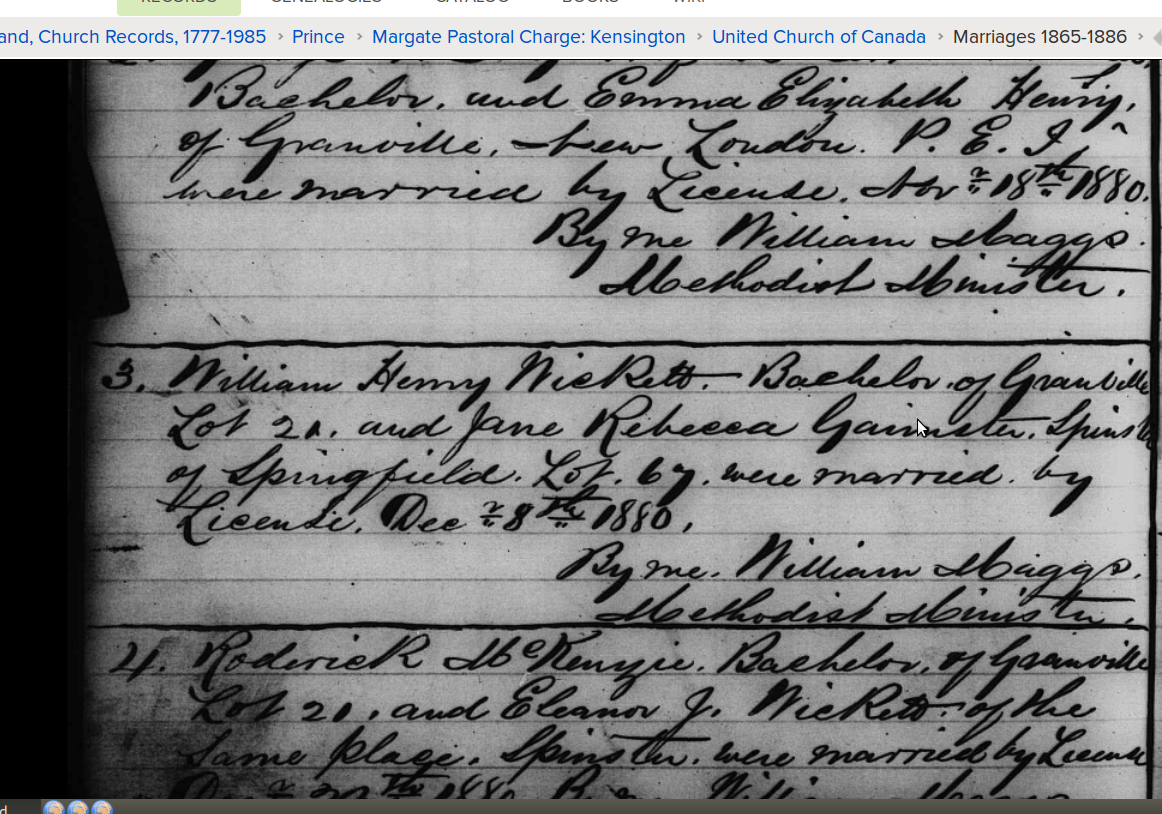 RECORDS GENEALOGIES CATALOG BOOKS WIKI
and, Church Records, 1777-1985 › Prince › Margate Pastoral Charge: Kensington › United Church of Canada › Marriages 1865-1886 ›
Bachelor, and Emma Elizabeth Henry,
of Granville, New London. P. E. I
were married by License. Nov 18th 1880.
By me William Maggs.
Methodist Minister.
3. William Henry Wickett. Bachelor, of Granville
Lot 21, and Jane Rebecca Spinster
of Springfield. Lot. 67. were married. by
License, Dec 8th 1880,
By me. William Maggs.
Methodist Minister.
4. Roderick McKenzie. Bachelor, of Granville
Lot 21, and Eleanor J. Wickett of the
Same place. Spinster. were married by License